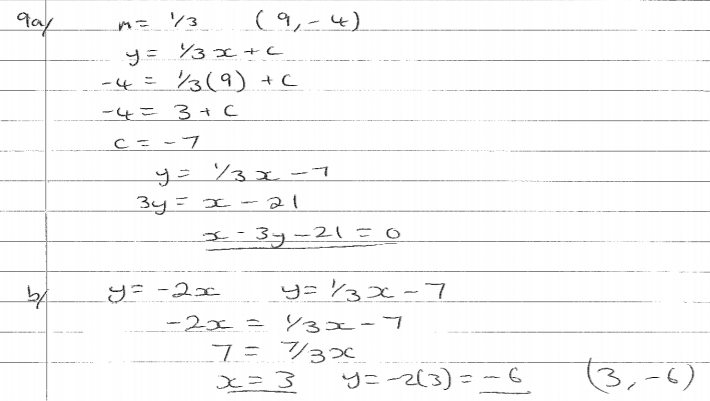 9a/ m = 1/3 (9, -4)
y = 1/3 x + c
-4 = 1/3(9) + c
-4 = 3 + c
c = -7
y = 1/3 x - 7
3y = x - 21
x - 3y - 21 = 0
b/ y = -2x y = 1/3 x - 7
-2x = 1/3 x - 7
7 = 7/3 x
x = 3 y = -2(3) = -6 (3, -6)